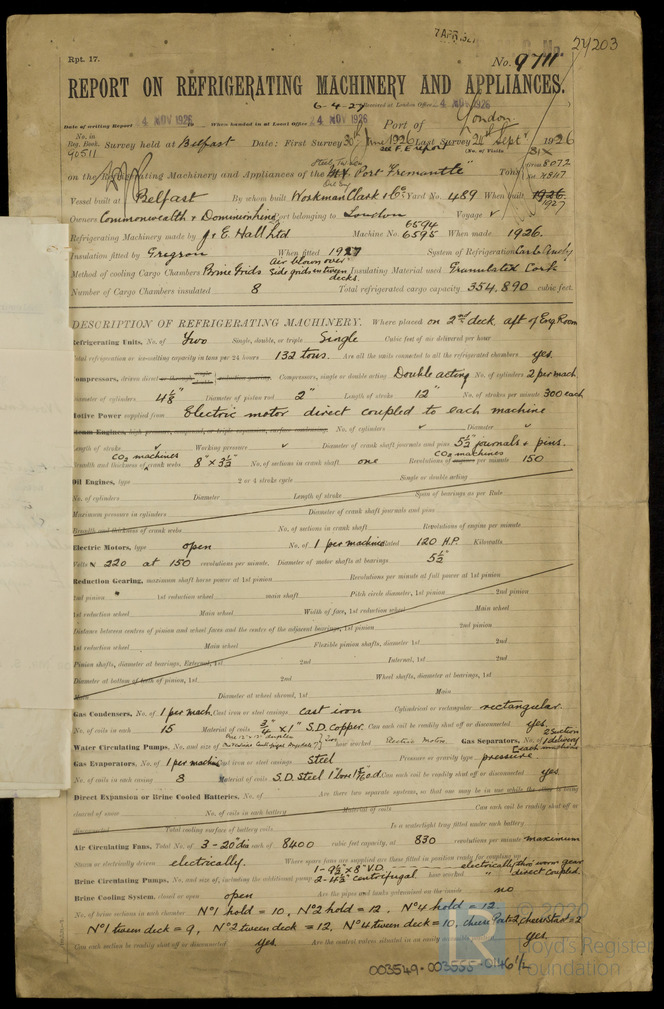 7 APR 1927
24203
Rpt. 17.
No. 9711.
REPORT ON REFRIGERATING MACHINERY AND APPLIANCES.
6-4-27 Received at London Office 4 NOV 1926
Date of writing Report 4 NOV 1926 When handed in at Local Office 4 NOV 1926 Port of London
No. in Reg. Book. 90511 Survey held at Belfast Date: First Survey 30th June 1926 Last Survey 24th Sept 1926
see F.E. report (No. of Visits Six
on the Refrigerating Machinery and Appliances of the "Port Fremantle" Tons Gross 8072 Net
Vessel built at Belfast By whom built Workman Clark & Co Yard No. 489 When built 1926 1927
Owners Commonwealth & Dominion Line Port belonging to London Voyage ✓
Refrigerating Machinery made by J & E. Hall Ltd Machine No. 6594 6595 When made 1926.
Insulation fitted by Gregson When fitted 1927 System of Refrigeration Carb. Anhy
Method of cooling Cargo Chambers Brine Grids. Air blown over side grids in tween decks. Insulating Material used Granulated Cork
Number of Cargo Chambers insulated 8 Total refrigerated cargo capacity 354,890 cubic feet.
DESCRIPTION OF REFRIGERATING MACHINERY. Where placed on 2nd deck, aft of Eng Room
Refrigerating Units, No. of Two Single, double, or triple Single Cubic feet of air delivered per hour
Total refrigeration or ice-making capacity in tons per 24 hours 132 tons. Are all the units connected to all the refrigerated chambers yes.
Compressors, driven direct or through Compressors, single or double acting Double acting No. of cylinders 2 per mach
Diameter of cylinders 4⅛" Diameter of piston rod 2" Length of stroke 12" No. of strokes per minute 300 each
Motive Power supplied from Electric motor direct coupled to each machine
Steam Engines, high pressure, compound, or triple No. of cylinders ✓ Diameter ✓
Length of stroke ✓ Working pressure ✓ Diameter of crank shaft journals and pins 5½" journals & pins.
CO2 machines CO2 machines
Breadth and thickness of crank webs 8" × 3½" No. of sections in crank shaft one Revolutions of engines per minute 150
Oil Engines, type 2 or 4 stroke cycle Single or double acting
No. of cylinders Diameter Length of stroke Span of bearings as per Rule
Maximum pressure in cylinders Diameter of crank shaft journals and pins
Breadth and thickness of crank webs No. of sections in crank shaft Revolutions of engine per minute
Electric Motors, type open No. of 1 per machine Rated 120 H.P. Kilowatts
Volts 220 at 150 revolutions per minute. Diameter of motor shafts at bearings 5½"
Reduction Gearing, maximum shaft horse power at 1st pinion Revolutions per minute at full power at 1st pinion
2nd pinion 1st reduction wheel main shaft Pitch circle diameter, 1st pinion 2nd pinion
1st reduction wheel Main wheel Width of face, 1st reduction wheel Main wheel
Distance between centres of pinion and wheel faces and the centre of the adjacent bearings, 1st pinion 2nd pinion
1st reduction wheel Main wheel Flexible pinion shafts, diameter 1st 2nd
Pinion shafts, diameter at bearings, External, 1st 2nd Internal, 1st 2nd
Diameter at bottom of teeth of pinion, 1st 2nd Wheel shafts, diameter at bearings, 1st
Main Diameter at wheel shroud, 1st Main
Gas Condensers, No. of 1 per mach. Cast iron or steel casings Cast iron Cylindrical or rectangular rectangular.
No. of coils in each 15 Material of coils ¾" × 1" S.D. Copper. Can each coil be readily shut off or disconnected yes.
Water Circulating Pumps, No. and size of how worked Electric Motor Gas Separators, No. of 2 Suction 1 delivery each machine
Gas Evaporators, No. of 1 per machine Cast iron or steel casings Steel Pressure or gravity type pressure
No. of coils in each casing 8 Material of coils S.D. Steel Can each coil be readily shut off or disconnected yes.
Direct Expansion or Brine Cooled Batteries, No. of Are there two separate systems, so that one may be in use while the other is being
cleared of snow No. of coils in each battery Material of coils Can each coil be readily shut off or
disconnected Total cooling surface of battery coils Is a watertight tray fitted under each battery
Air Circulating Fans, Total No. of 3 - 20" dia each of 8400 cubic feet capacity, at 830 revolutions per minute maximum
Steam or electrically driven electrically. Where spare fans are supplied are these fitted in position ready for coupling up
Brine Circulating Pumps, No. and size of, including the additional pump 1 - 9½" × 8" V.D. 2 - 4½" centrifugal how worked electrically thro' worm gear " direct coupled.
Brine Cooling System, closed or open open Are the pipes and tanks galvanised on the inside no
No. of brine sections in each chamber No 1 hold = 10, No 2 hold = 12, No 4 hold = 12.
No 1 tween deck = 9, No 2 tween deck = 12, No 4 tween deck = 10,
Can each section be readily shut off or disconnected yes. Are the control valves situated in an easily yes.
© 2020
Lloyd's Register
Foundation
003549-003555-0146 1/2